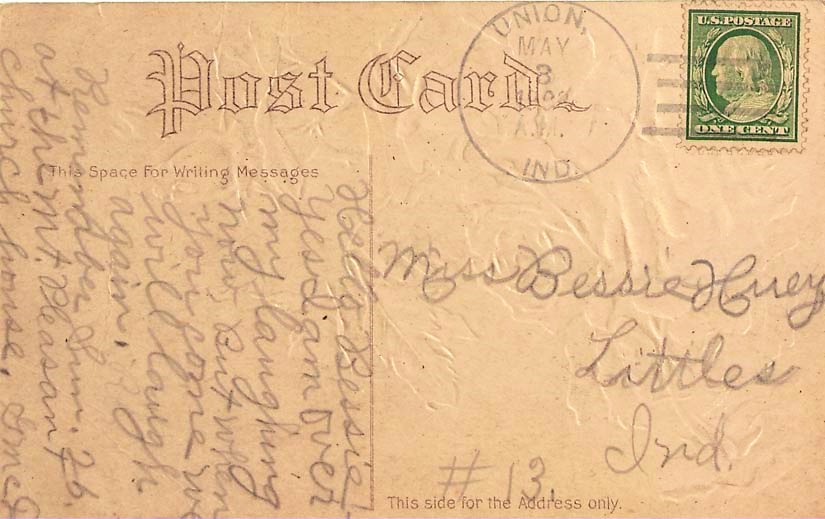 Post Card
UNION,
MAY
3
A.M.
IND.
U.S. POSTAGE
ONE CENT
This Space For Writing Messages
Hello Bessie!
yes I am over
my laughing
now but when
you come we
will laugh
again.
Remember Sun. 26.
at the Mt. Pleasant
church house.
Miss Bessie Huey
Littles
Ind.
# 13.
This side for the Address only.